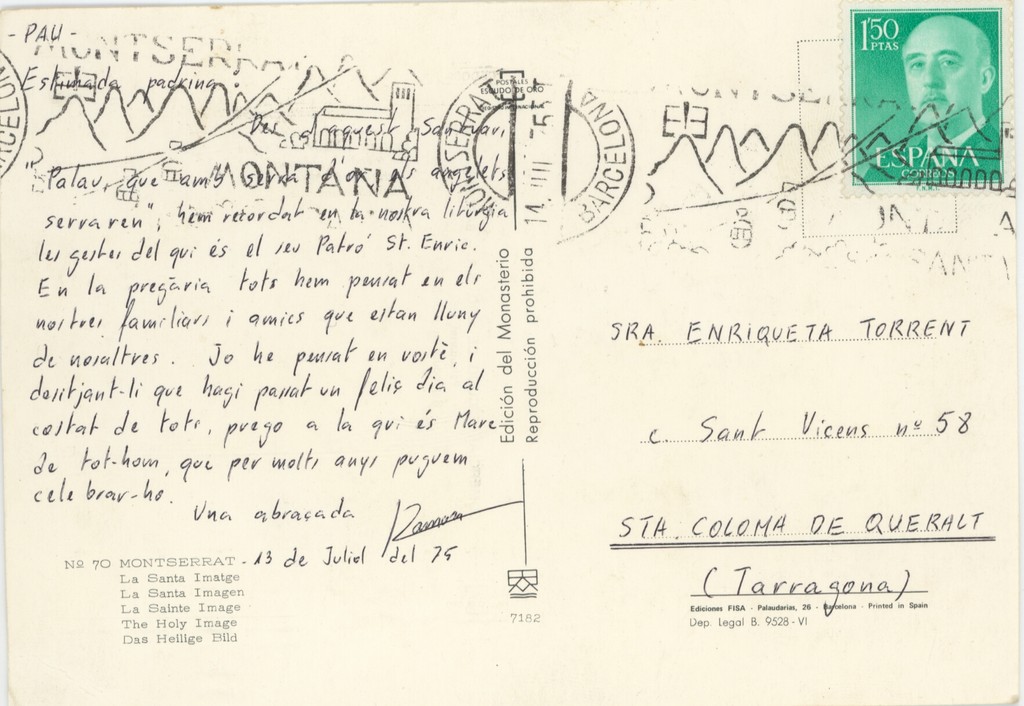 - PAU -
Estimada padrina:
Des d'aquest Santuari
"Palau, que amb serra d'or els angelets
serraren", hem recordat en la nostra litúrgia
les gestes del qui és el seu Patró St. Enric.
En la pregària tots hem pensat en els
nostres familiars i amics que estan lluny
de nosaltres. Jo he pensat en vostè, i
desitjant-li que hagi passat un feliç dia al
costat de tots, prego a la qui és Mare
de tot-hom, que per molts anys puguem
celebrar-ho.
Una abraçada Ramon
13 de Juliol del 75
Nº 70 MONTSERRAT -
La Santa Imatge
La Santa Imagen
La Sainte Image
The Holy Image
Das Heilige Bild
MONTSERRAT
MONTAÑA
BARCELONA
POSTALES
ESCUDO DE ORO
MONTSERRAT
14 VIII 75
BARCELONA
Edición del Monasterio
Reproducción prohibida
7182
1'50
PTAS
ESPAÑA
CORREOS
SRA. ENRIQUETA TORRENT
c. Sant Vicens nº 58
STA. COLOMA DE QUERALT
(Tarragona)
Ediciones FISA - Palaudarias, 26 - Barcelona - Printed in Spain
Dep. Legal B. 9528 - VI